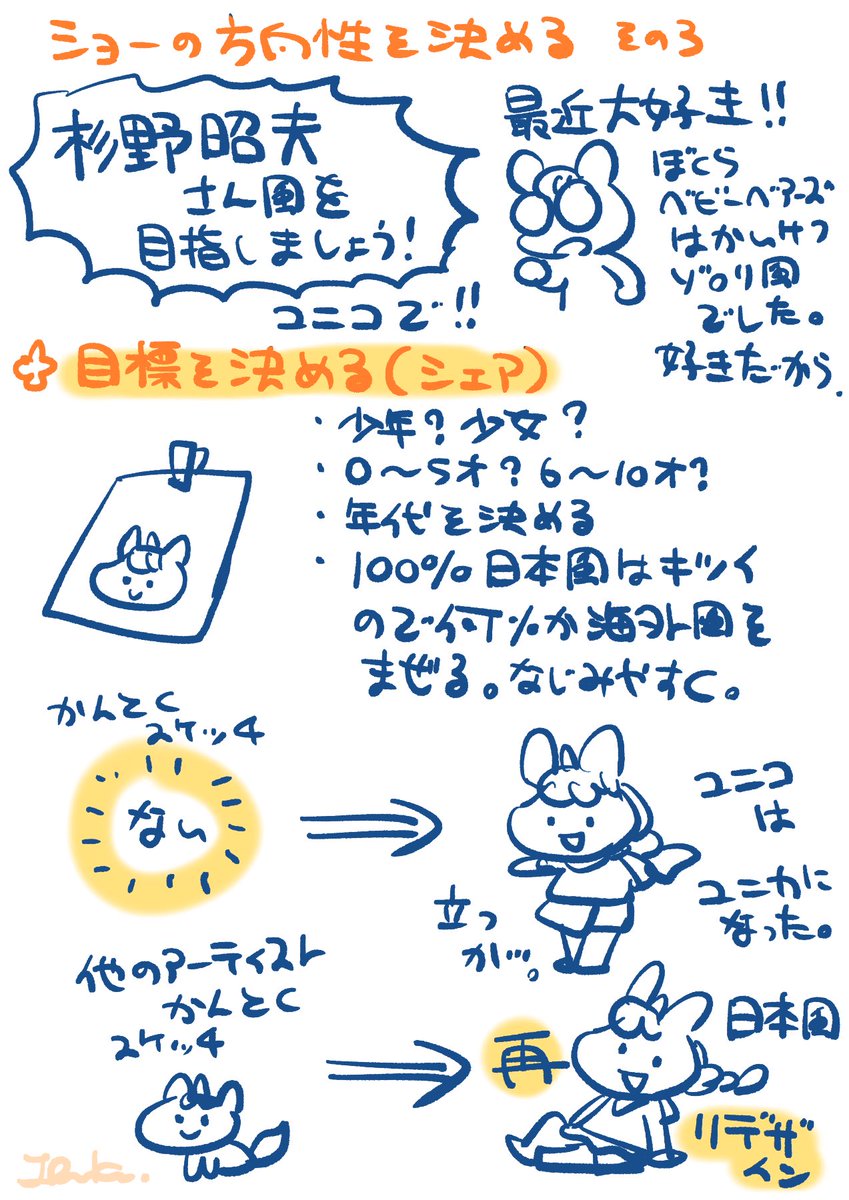 ショーの方向性を決める その3
杉野昭夫
さん風を
目指しましょう!
ユニコで!!
最近大好き!!
ぼくら
ベビーベアーズ
はかいけつ
ゾロリ風
でした。
好きだから.
目標を決める(シェア)
・少年?少女?
・0~5才?6~10才?
・年代を決める
・100%日本風はキツイ
ので何%か海外風を
まぜる。なじみやすく。
かんとく
スケッチ
ない
立つ
か…。
ユニコ
は
ユニカに
なった。
他のアーティスト
かんとく
スケッチ
再
日本風
リデザ
イン